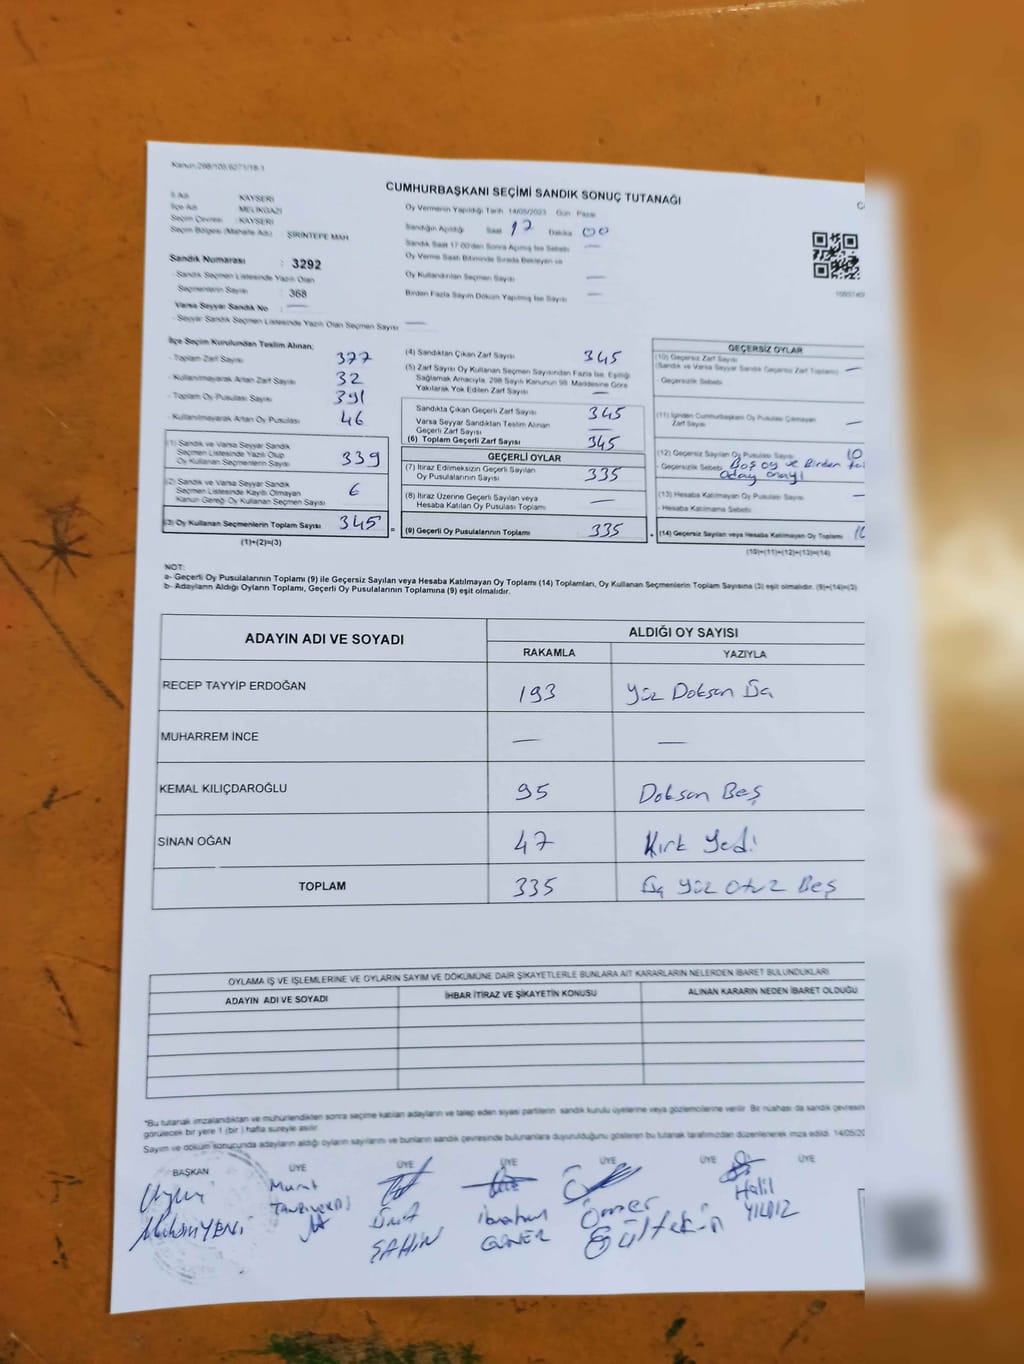 Kanun:298/105,6271/18-1
CUMHURBAŞKANI SEÇİMİ SANDIK SONUÇ TUTANAĞI
İl Adı KAYSERİ
İlçe Adı MELİKGAZİ
Seçim Çevresi : KAYSERİ
Seçim Bölgesi (Mahalle Adı) : ŞİRİNTEPE MAH.
Sandık Numarası : 3292
- Sandık Seçmen Listesinde Yazılı Olan
Seçmenlerin Sayısı : 368
Varsa Seyyar Sandık No : —
- Seyyar Sandık Seçmen Listesinde Yazılı Olan Seçmen Sayısı —
Oy Vermenin Yapıldığı Tarih 14/05/2023 Gün : Pazar
Sandığın Açıldığı Saat 17 Dakika 00
Sandık Saat 17:00'den Sonra Açılmış İse Sebebi —
Oy Verme Saati Bitiminde Sırada Bekleyen ve
Oy Kullandırılan Seçmen Sayısı —
Birden Fazla Sayım Döküm Yapılmış İse Sayısı —
İlçe Seçim Kurulundan Teslim Alınan;
- Toplam Zarf Sayısı 377
- Kullanılmayarak Artan Zarf Sayısı 32
- Toplam Oy Pusulası Sayısı 391
- Kullanılmayarak Artan Oy Pusulası 46
(1) Sandık ve Varsa Seyyar Sandık
Seçmen Listesinde Yazılı Olup
Oy Kullanan Seçmenlerin Sayısı 339
(2) Sandık ve Varsa Seyyar Sandık
Seçmen Listesinde Kayıtlı Olmayan
Kanun Gereği Oy Kullanan Seçmen Sayısı 6
(3) Oy Kullanan Seçmenlerin Toplam Sayısı 345 =
(1)+(2)=(3)
(4) Sandıktan Çıkan Zarf Sayısı 345
(5) Zarf Sayısı Oy Kullanan Seçmen Sayısından Fazla İse, Eşitliği
Sağlamak Amacıyla, 298 Sayılı Kanunun 98. Maddesine Göre
Yakılarak Yok Edilen Zarf Sayısı —
Sandıkta Çıkan Geçerli Zarf Sayısı 345
Varsa Seyyar Sandıktan Teslim Alınan
Geçerli Zarf Sayısı —
(6) Toplam Geçerli Zarf Sayısı 345
GEÇERLİ OYLAR
(7) İtiraz Edilmeksizin Geçerli Sayılan
Oy Pusulalarının Sayısı 335
(8) İtiraz Üzerine Geçerli Sayılan veya
Hesaba Katılan Oy Pusulası Toplamı —
(9) Geçerli Oy Pusulalarının Toplamı 335 +
GEÇERSİZ OYLAR
(10) Geçersiz Zarf Sayısı
(Sandık ve Varsa Seyyar Sandık Geçersiz Zarf Toplamı) —
- Geçersizlik Sebebi
(11) İçinden Cumhurbaşkanı Oy Pusulası Çıkmayan
Zarf Sayısı —
(12) Geçersiz Sayılan Oy Pusulası Sayısı 10
- Geçersizlik Sebebi Boş oy ve Birden
aday onayı
(13) Hesaba Katılmayan Oy Pusulası Sayısı —
- Hesaba Katılmama Sebebi
(14) Geçersiz Sayılan veya Hesaba Katılmayan Oy Toplamı
(10)+(11)+(12)+(13)=(14)
NOT:
a- Geçerli Oy Pusulalarının Toplamı (9) ile Geçersiz Sayılan veya Hesaba Katılmayan Oy Toplamı (14) Toplamları, Oy Kullanan Seçmenlerin Toplam Sayısına (3) eşit olmalıdır. (9)+(14)=(3)
b- Adayların Aldığı Oyların Toplamı, Geçerli Oy Pusulalarının Toplamına (9) eşit olmalıdır.
ADAYIN ADI VE SOYADI ALDIĞI OY SAYISI
RAKAMLA YAZIYLA
RECEP TAYYİP ERDOĞAN 193 Yüz Doksan Üç
MUHARREM İNCE — —
KEMAL KILIÇDAROĞLU 95 Doksan Beş
SİNAN OĞAN 47 Kırk Yedi
TOPLAM 335 Üç Yüz Otuz Beş
OYLAMA İŞ VE İŞLEMLERİNE VE OYLARIN SAYIM VE DÖKÜMÜNE DAİR ŞİKAYETLERLE BUNLARA AİT KARARLARIN NELERDEN İBARET BULUNDUKLARI
ADAYIN ADI VE SOYADI İHBAR İTİRAZ VE ŞİKAYETİN KONUSU ALINAN KARARIN NEDEN İBARET OLDUĞU
*Bu tutanak imzalandıktan ve mühürlendikten sonra seçime katılan adayların ve talep eden siyasi partilerin sandık kurulu üyelerine veya gözlemcilerine verilir. Bir nüshası da sandık çevresinde
görülecek bir yere 1 (bir) hafta süreyle asılır.
Sayım ve döküm sonucunda adayların aldığı oyların sayılarını ve bunların sandık çevresinde bulunanlara duyurulduğunu gösteren bu tutanak tarafımızdan düzenlenerek imza edildi. 14/05/20
BAŞKAN ÜYE ÜYE ÜYE ÜYE ÜYE ÜYE
Murat
Ümit ŞAHİN
İbrahim GÜNER
Ömer Gültekin
Halil YILDIZ